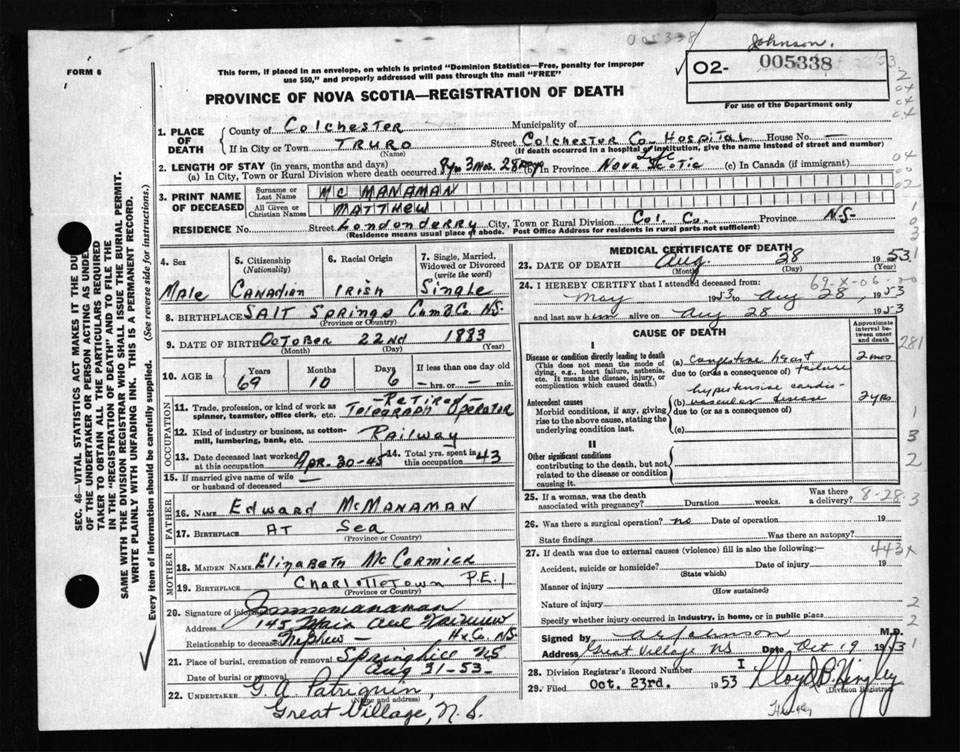 005338
Johnson.
FORM 6
This form, if placed in an envelope, on which is printed "Dominion Statistics—Free, penalty for improper
use $50," and properly addressed will pass through the mail "FREE"
02- 005338
For use of the Department only
PROVINCE OF NOVA SCOTIA—REGISTRATION OF DEATH
SEC. 46—VITAL STATISTICS ACT MAKES IT THE DUTY
OF THE UNDERTAKER OR PERSON ACTING AS UNDERTAKER TO OBTAIN ALL THE PARTICULARS REQUIRED
IN THE "REGISTRATION OF DEATH" AND TO FILE THE
SAME WITH THE DIVISION REGISTRAR WHO SHALL ISSUE THE BURIAL PERMIT.
WRITE PLAINLY WITH UNFADING INK. THIS IS A PERMANENT RECORD.
Every item of information should be carefully supplied. (See reverse side for instructions.)
1. PLACE OF DEATH County of Colchester Municipality of
If in City or Town TRURO (Name) Street Colchester Co. Hospital House No. —
(If death occurred in a hospital or institution, give the name instead of street and number)
2. LENGTH OF STAY (in years, months and days)
(a) In City, Town or Rural Division where death occurred 8 yrs 3 Mos. 28 Days (b) In Province Nova Scotia Life (c) In Canada (if immigrant)
3. PRINT NAME OF DECEASED
Surname or Last Name MC MANAMAN
All Given or Christian Names MATTHEW
RESIDENCE No. Street Londonderry City, Town or Rural Division Col. Co. Province N.S.
(Residence means usual place of abode. Post Office Address for residents in rural parts not sufficient)
4. Sex Male
5. Citizenship (Nationality) Canadian
6. Racial Origin Irish
7. Single, Married, Widowed or Divorced (write the word) Single
8. BIRTHPLACE Salt Springs Cumb. Co. N.S.
(Province or Country)
9. DATE OF BIRTH October 22nd 1883
(Month) (Day) (Year)
10. AGE in Years 69 Months 10 Days 6 If less than one day old — hrs. or — min.
OCCUPATION
11. Trade, profession, or kind of work as spinner, teamster, office clerk, etc. —Retired— Telegraph Operator
12. Kind of industry or business, as cotton-mill, lumbering, bank, etc. Railway
13. Date deceased last worked at this occupation Apr. 30-45 14. Total yrs. spent in this occupation 43
15. If married give name of wife or husband of deceased —
FATHER
16. NAME Edward McManaman
17. BIRTHPLACE At Sea
(Province or Country)
MOTHER
18. MAIDEN NAME Elizabeth McCormick
19. BIRTHPLACE Charlottetown P.E.I
(Province or Country)
20. Signature of informant
Address 145 Main Ave Fairview
Relationship to deceased —Nephew— Hx Co. N.S.
21. Place of burial, cremation or removal Springhill N.S
Date of burial or removal Aug 31-53
22. UNDERTAKER G. A. Patriquin,
(Name and address)
Great Village, N.S.
MEDICAL CERTIFICATE OF DEATH
23. DATE OF DEATH Aug. 28 1953
(Month) (Day) (Year)
69-X-06
24. I HEREBY CERTIFY that I attended deceased from:
May 1953 to Aug 28, 1953
and last saw him alive on Aug 28 1953
CAUSE OF DEATH
Approximate interval between onset and death
I
Disease or condition directly leading to death
(This does not mean the mode of dying, e.g., heart failure, asthenia, etc. It means the disease, injury, or complication which caused death.)
(a) Congestive heart failure 2 mos
due to (or as a consequence of)
Antecedent causes
Morbid conditions, if any, giving rise to the above cause, stating the underlying condition last.
hypertensive cardio-
(b) vascular disease 2 yrs
due to (or as a consequence of)
(c)
II
Other significant conditions
contributing to the death, but not related to the disease or condition causing it.
25. If a woman, was the death associated with pregnancy? Duration weeks. Was there a delivery?
8-28-3
26. Was there a surgical operation? no Date of operation 19
State findings Was there an autopsy?
27. If death was due to external causes (violence) fill in also the following:—
443X
Accident, suicide or homicide? (State which) Date of injury 19
Manner of injury (How sustained)
Nature of injury
Specify whether injury occurred in industry, in home, or in public place
Signed by M.D.
Address Great Village NS Date Oct 19 1953
28. Division Registrar's Record Number I
29. Filed Oct. 23rd. 1953
(Division Registrar)